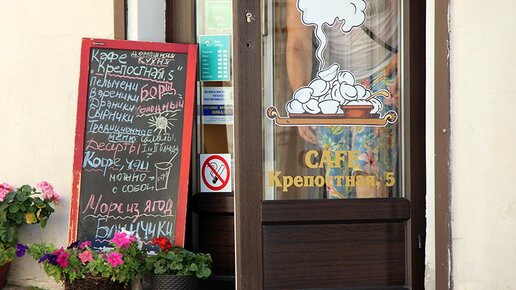 Кафе
Домашняя
кухня
"Крепостная, 5"
Пельмени
Вареники
Борщ
Драники
холодный
Сырники
Традиционное
меню
салаты
Десерты
I и II блюда
Кофе, чай
можно
с собой
Морс из ягод
Блинчики
CAFE
CAFE
Крепостная, 5